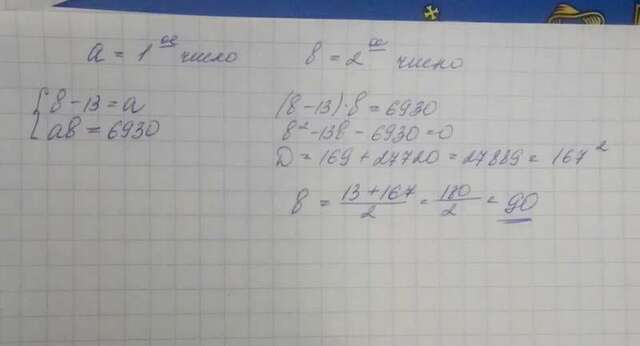 a = 1ое число
в = 2ое число
{ в - 13 = a
aв = 6930
(в - 13)·в = 6930
в² - 13в - 6930 = 0
D = 169 + 27720 = 27889 = 167²
в = (13 + 167)/2 = 180/2 = 90